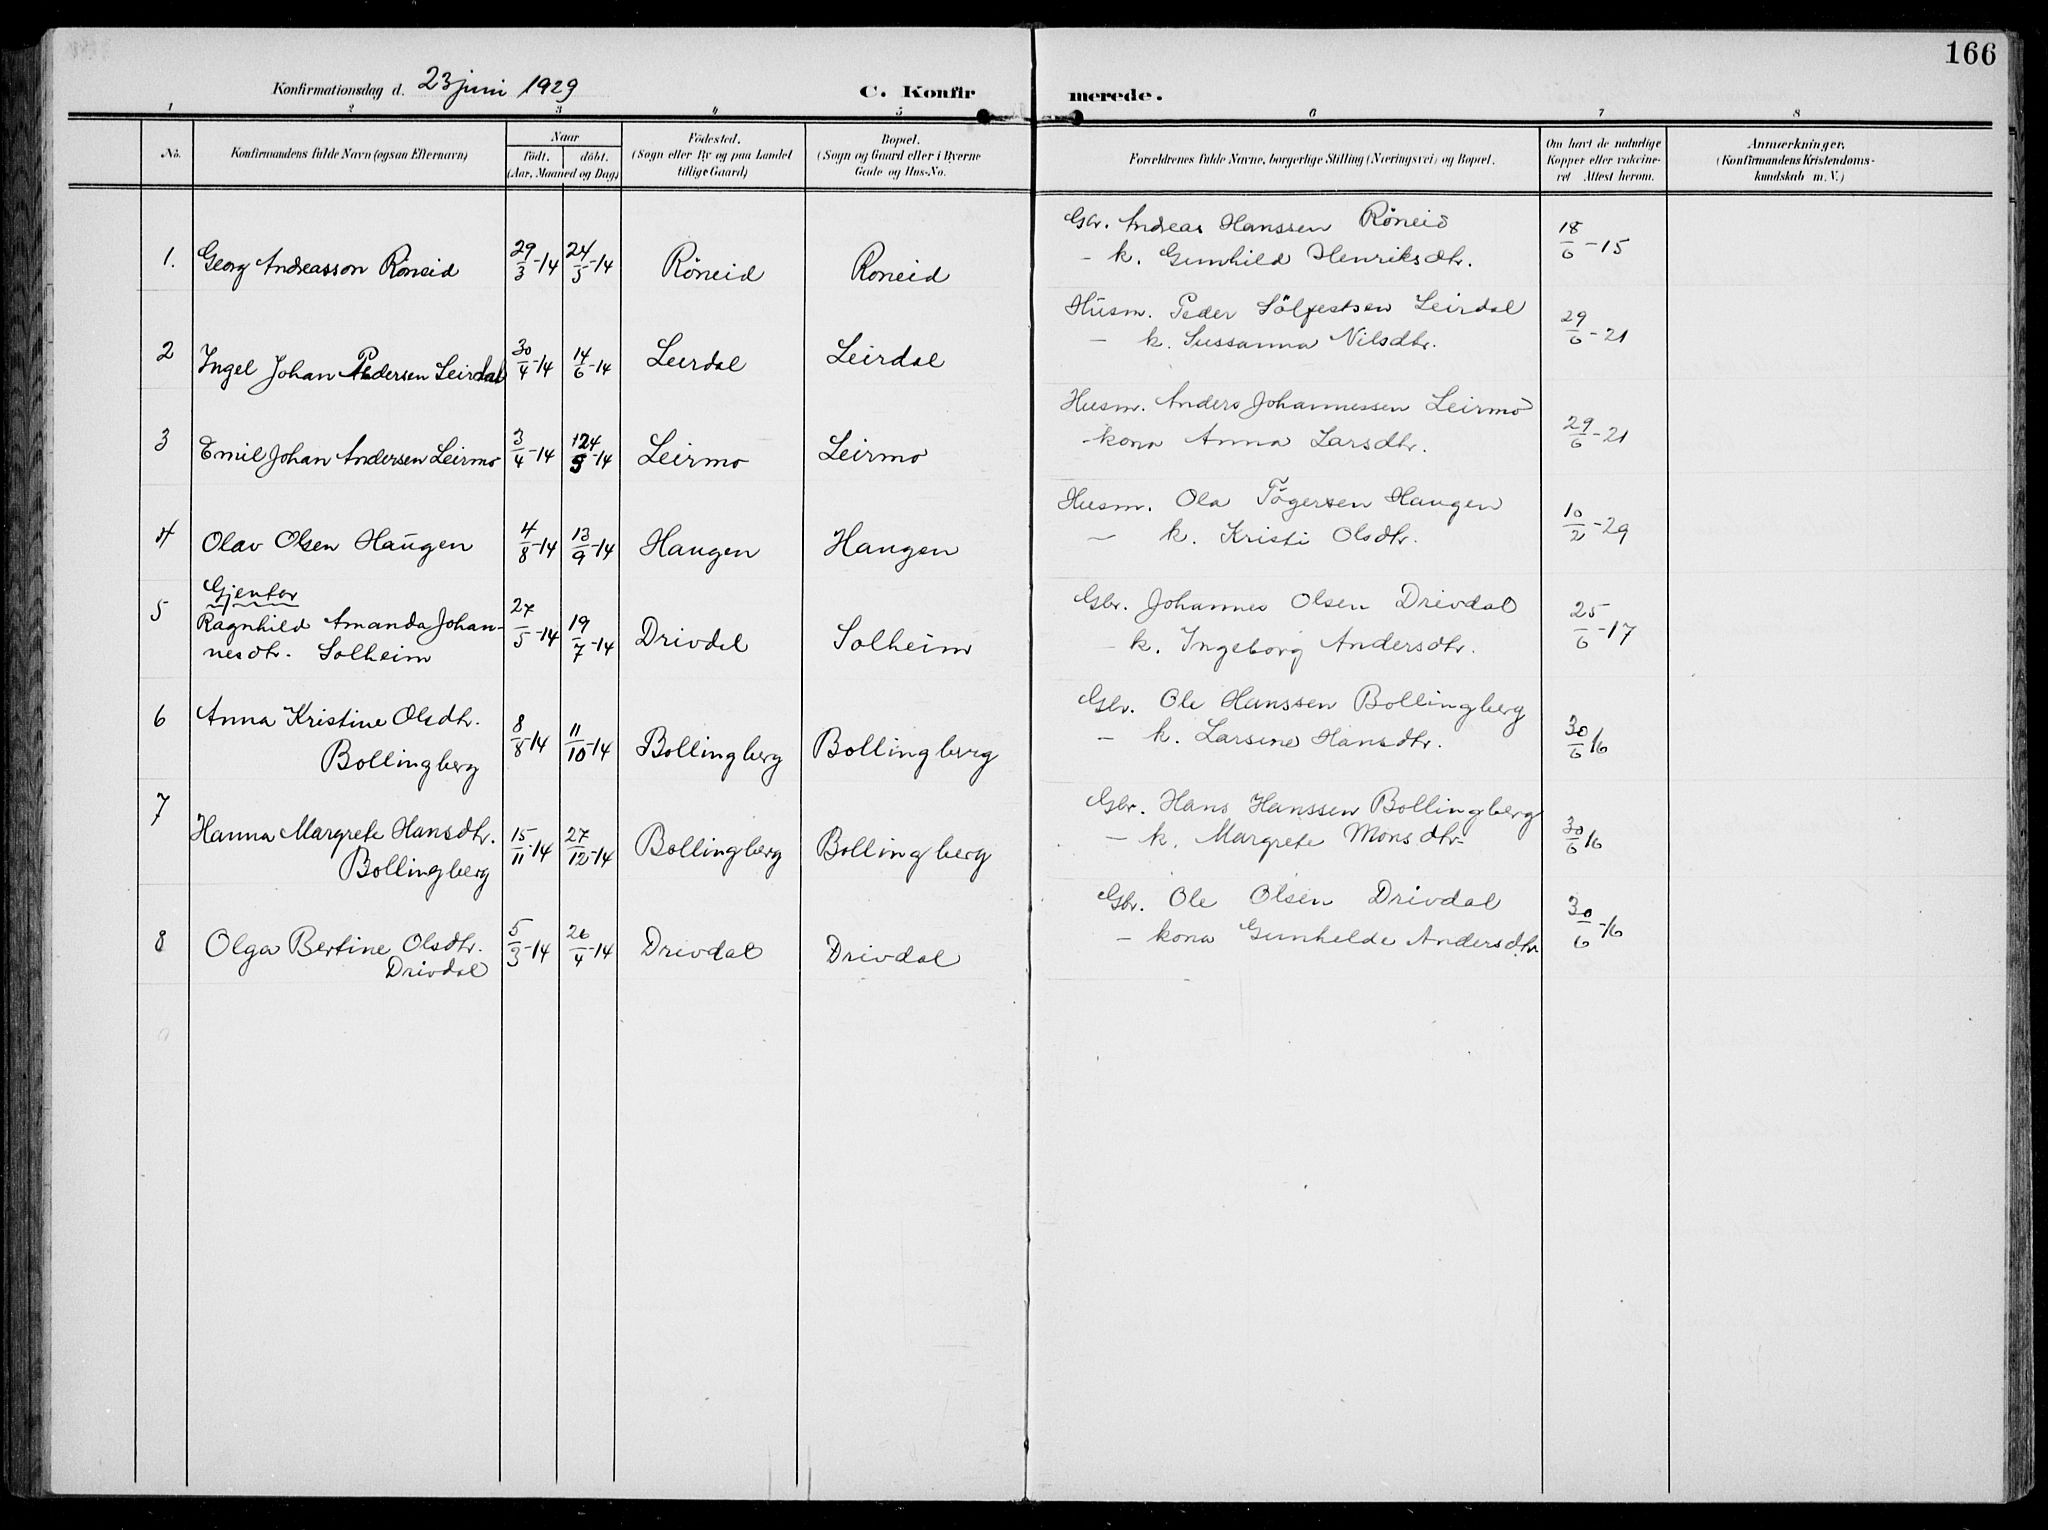 166
Konfirmationsdag d. 23 juni 1929 C. Konfirmerede.
1 2 3 4 5 6 7 8
No. Konfirmandens fulde Navn (ogsaa Efternavn) Naar Födested. Bopæl. Forældrenes fulde Navne, borgerlige Stilling (Næringsvei) og Bopæl. Om havt de naturlige Anmærkninger.
födt. döbt. (Sogn eller By og paa Landet (Sogn og Gaard eller i Byerne Kopper eller vakcine- (Konfirmandens Kristendoms-
(Aar, Maaned og Dag) tillige Gaard) Gade og Hus-No. ret Attest herom. kundskab m. V.)
Gbr. Andreas Hanssen Röneid
1. Georg Andreasson Röneid 29/3-14 24/5-14 Röneid Roneid - k. Gunhild Henriksdtr. 18/6-15
Husm. Peder Sölfestsen Leirdal
2 Ingel Johan Pedersen Leirdal 30/4-14 14/6-14 Leirdal Leirdal - k. Sussanna Nilsdtr. 29/6-21
Husm. Anders Johannessen Leirmo
3 Emil Johan Andersen Leirmo 3/4-14 -14 Leirmo Leirmo - kona Anna Larsdtr. 29/6-21
Husm. Ola Tögersen Haugen
4 Olav Olsen Haugen 4/8-14 13/9-14 Haugen Haugen - k. Kristi Olsdtr. 10/2-29
Gjentor
5 Ragnhild Amanda Johan- 27/5-14 19/7-14 Drivdal Solheim Gbr. Johannes Olsen Drivdal 25/6-17
nesdtr. Solheim - k. Ingeborg Andersdtr.
6 Anna Kristine Olsdtr. 8/8-14 11/10-14 Bollingberg Bollingberg Gbr. Ole Hanssen Bollingberg 30/6 16
Bollingberg - k. Larsine Hansdtr.
7 Hanna Margrete Hansdtr. 15/11-14 27/12-14 Bollingberg Bollingberg Gbr. Hans Hanssen Bollingberg 30/6 16
Bollingberg - k. Margrete Monsdtr.
8 Olga Bertine Olsdtr. 5/3-14 26/4-14 Drivdal Drivdal Gbr. Ole Olsen Drivdal 30/6-16
Drivdal - kona Gunhelde Andersdtr.